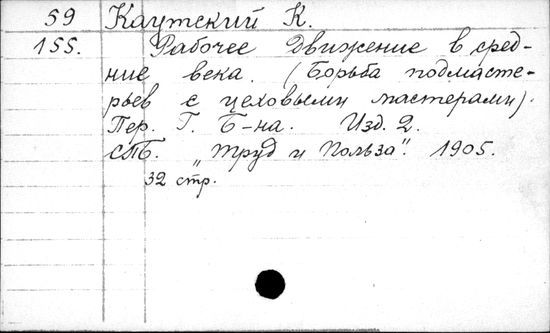 59 Каутский К.
155. Рабочее движение в сред-
ние века. (Борьба подмасте-
рьев с цеховыми мастерами).
Пер. Г. Б-на. Изд. 2.
СПБ. „Труд и Польза". 1905.
32 стр.